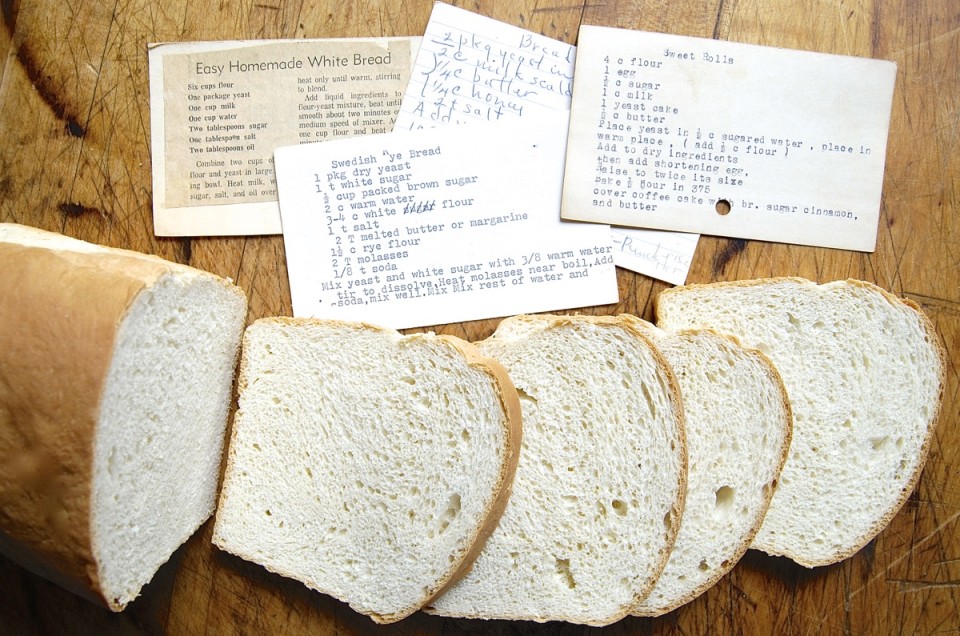 Easy Homemade White Bread
Six cups flour
One package yeast
One cup milk
One cup water
Two tablespoons sugar
One tablespoon salt
Two tablespoons oil
Combine two cups of
flour and yeast in large
ing bowl. Heat milk, w
sugar, salt, and oil over
heat only until warm, stirring
to blend.
Add liquid ingredients to
flour-yeast mixture, beat until
smooth about two minutes o
medium speed of mixer. A
one cup flour and beat
Bread
2 pkg. yeast in
2 c milk scald
1/4 c butter
1/4 c honey
2 t salt
Add
Swedish "ye Bread
1 pkg dry yeast
1 t white sugar
½ cup packed brown sugar
2 c warm water
3-4 c white flour
1 t salt
2 T melted butter or margarine
1½ c rye flour
2 T molasses
1/8 t soda
Mix yeast and white sugar with 3/8 warm water
tir to dissolve,Heat molasses near boil,Add
soda,mix well.Mix Mix rest of water and
Sweet Rolls
4 c flour
1 egg
½ c sugar
1 c milk
1 yeast cake
½ c butter
Place yeast in ½ c sugared water , place in
warm place . ( add ½ c flour )
Add to dry ingredients
then add shortening egg,
Raise to twice its size
bake ½ hour in 375
cover coffee cake with br. sugar cinnamon,
and butter